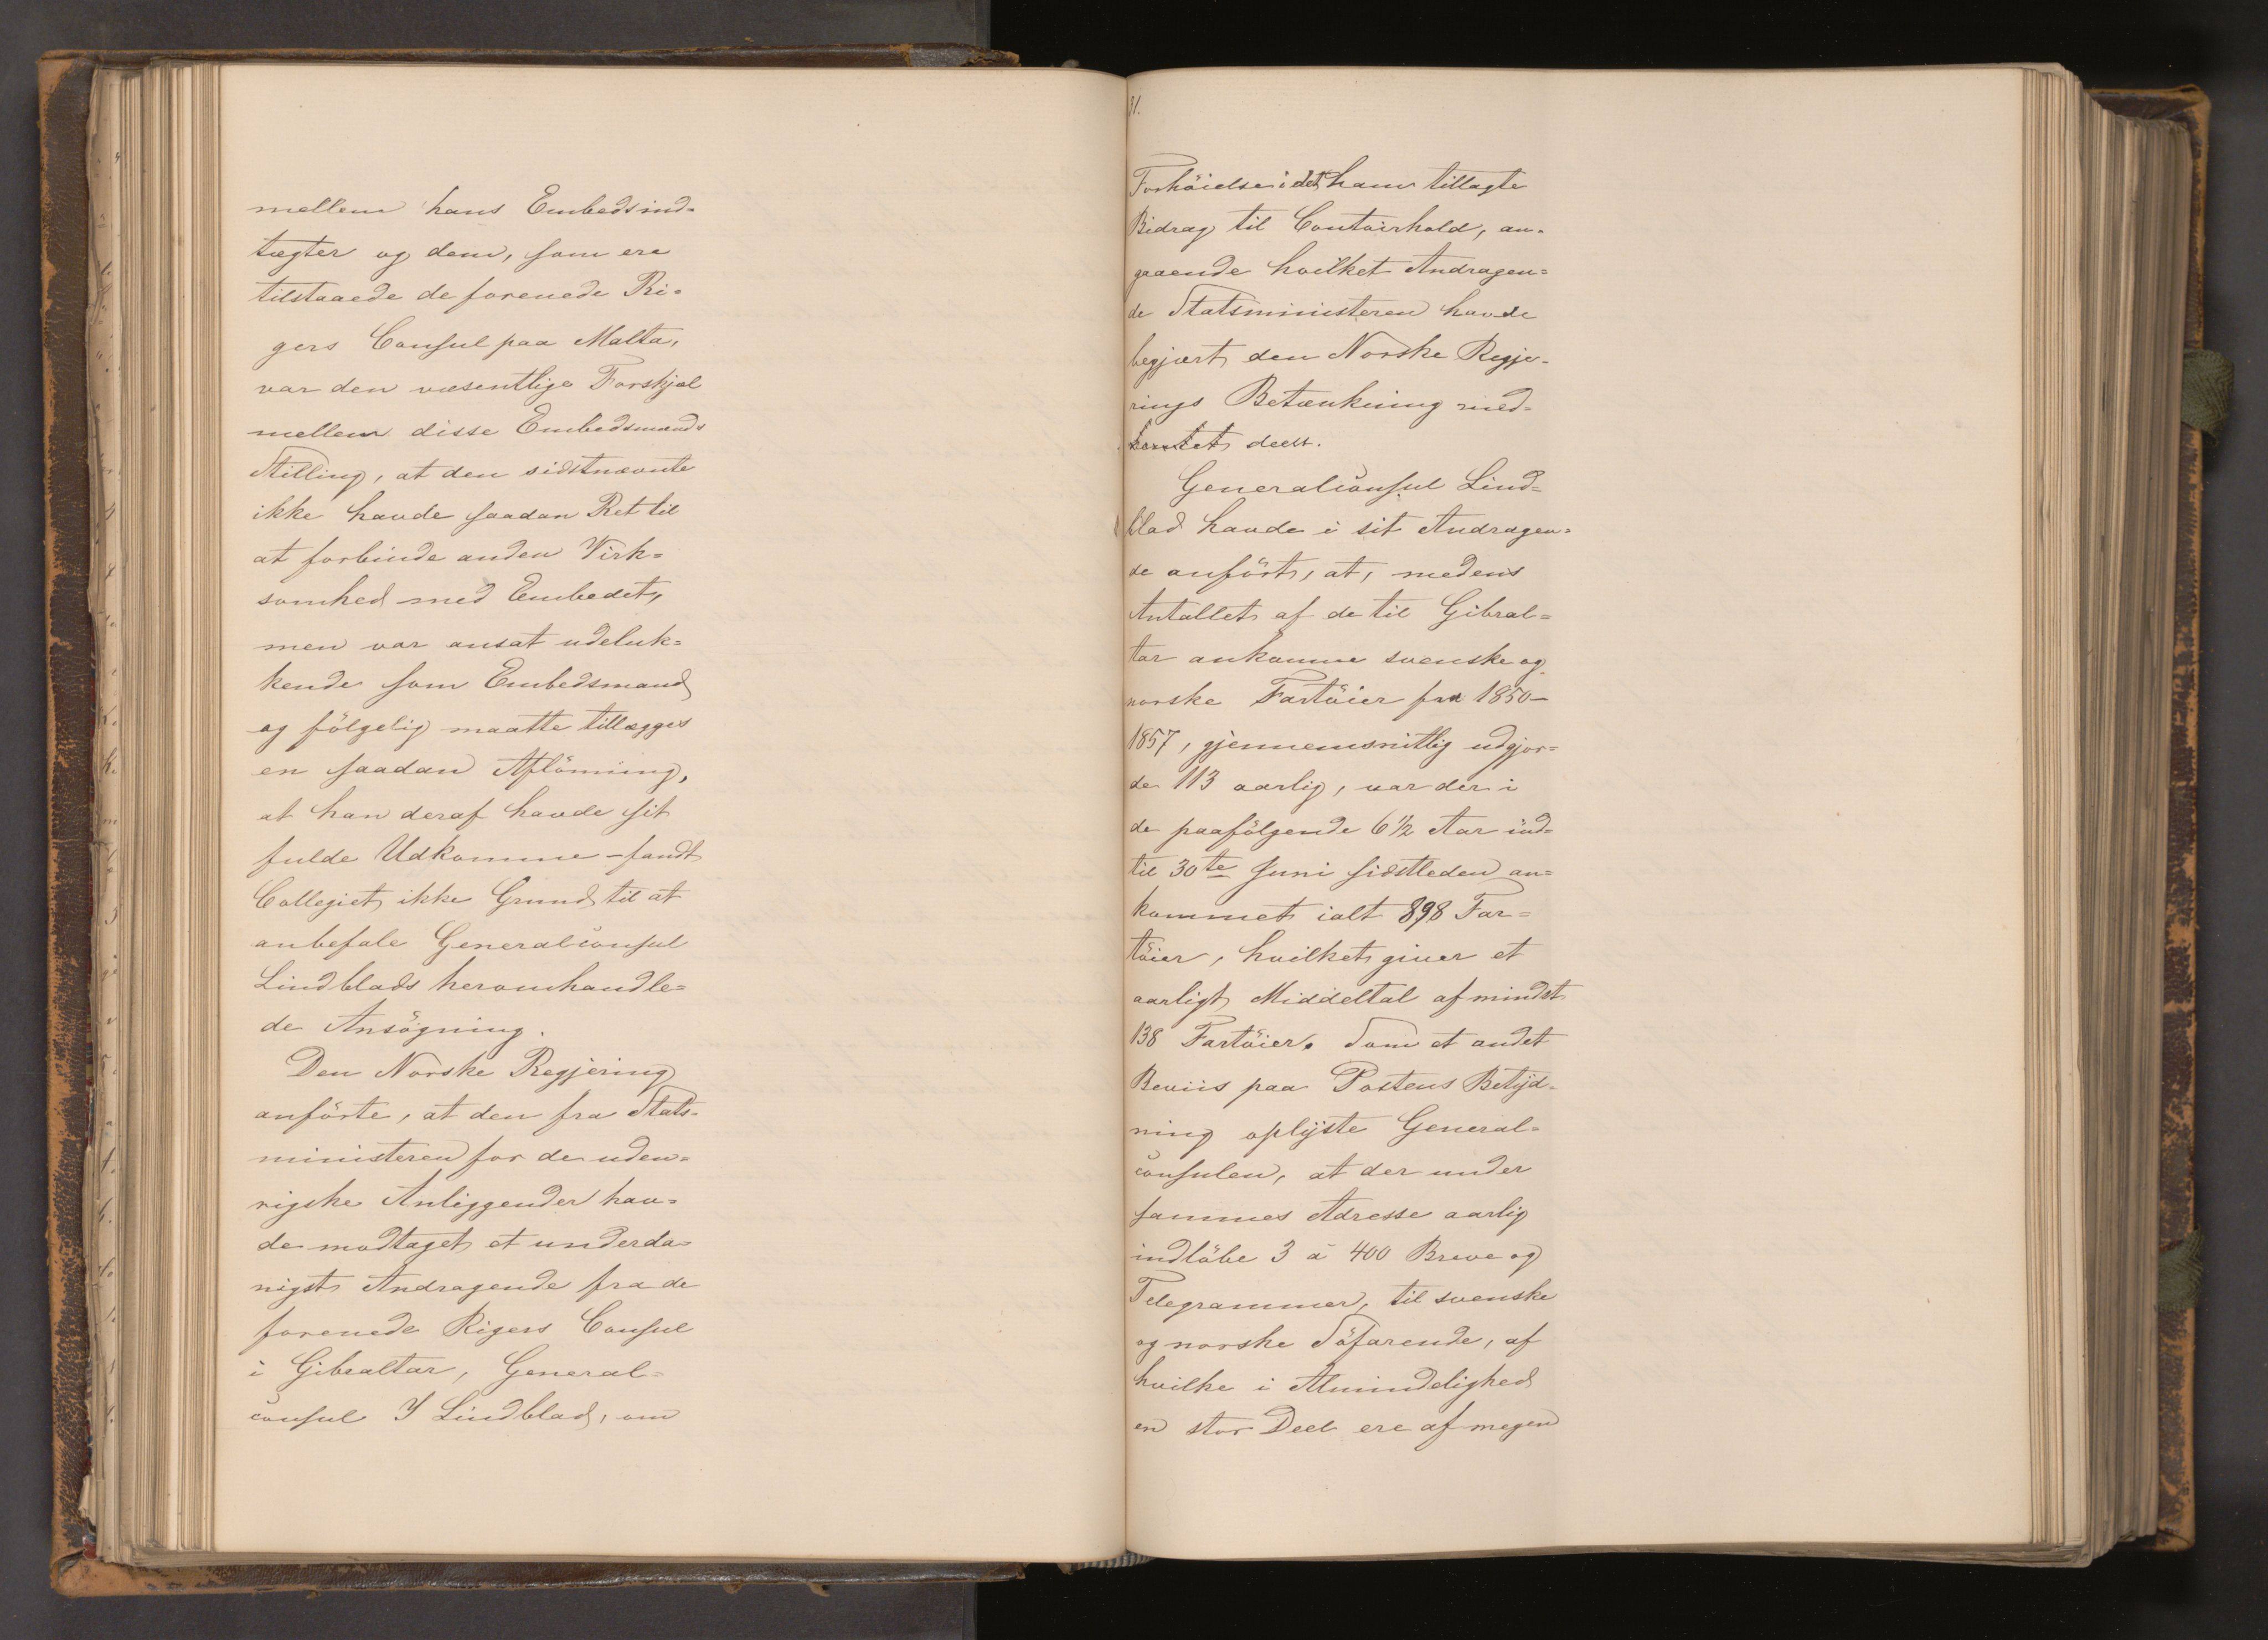 mellem hans Embedsind=
tægter og dem, som ere
tilstaaede de forenede Ri=
gers Consul paa Malta,
var den væsentlige Forskjel
mellem disse Embedsmænds
Stilling, at den sidstnævnte
ikke havde saadan Ret til
at forbinde anden Virk=
somhed med Embedet,
men var ansat udeluk=
kende som Embedsmand
og fölgelig maatte tillægges
en saadan Aflönning,
at han deraf havde sit
fulde Udkomme – fandt
Collegiet ikke Grund til at
anbefale Generalconsul
Lindblads heromhandle=
de Ansögning.
Den Norske Regjering
anförte, at den fra Stats=
ministeren for de uden=
rigske Anliggender hav=
de modtaget et underda=
nigst Andragende fra de
forenede Rigers Consul
i Gibraltar, General=
consul I Lindblad, om
31.
Forhöielse i det ham tillagte
Bidrag til Contoirhold, an=
gaaende hvilket Andragen=
de Statsministeren havde
begjært den Norske Regje=
rings Betænkning med=
deelt.
Generalconsul Lind=
blad havde i sit Andragen=
de anfört, at, medens
Antallet af de til Gibral=
tar ankomne svenske og
norske Fartöier fra 1850–
1857, gjennemsnitlig udgjor=
de 113 aarlig, var der i
de paafölgende 6 1/2 Aar ind=
til 30te Juni sidstleden an=
kommet ialt 898 Far=
töier, hvilket giver et
aarligt Middeltal af mindst
138 Fartöier. Som et andet
Beviis paa Postens Betyd=
ning oplyste General=
consulen, at der under
sammes Adresse aarlig
indlöbe 3 à 400 Breve og
Telegrammer, til svenske
og norske Söfarende, af
hvilke i Almindelighed
en stor Deel ere af megen